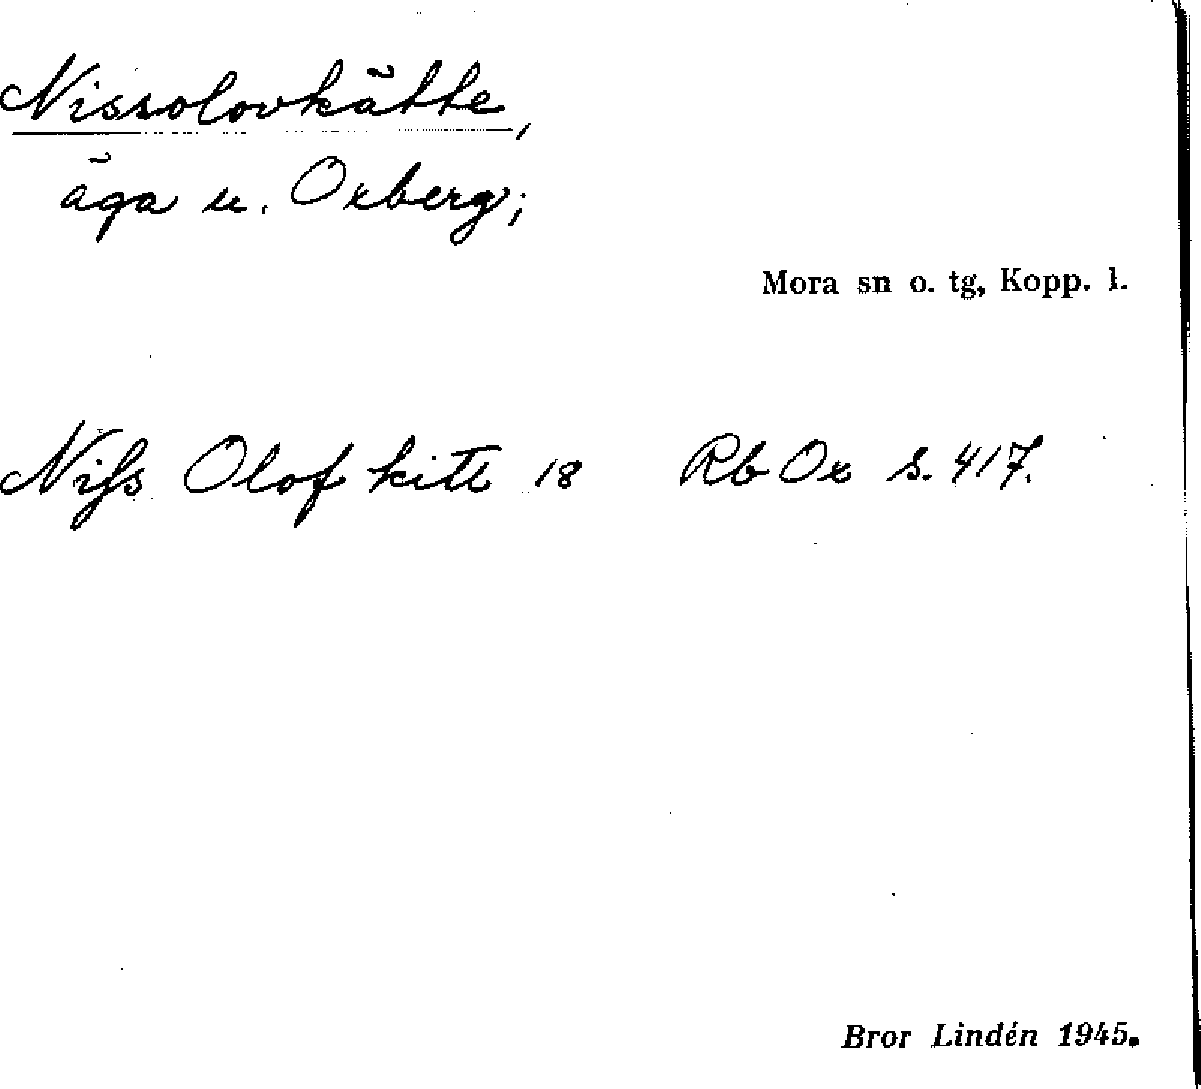 Nissolovkätte,
äga u. Oxberg;
Mora sn o. tg, Kopp. l.
Niss Olof kitt 18 Rb Ox s. 417.
Bror Lindén 1945.